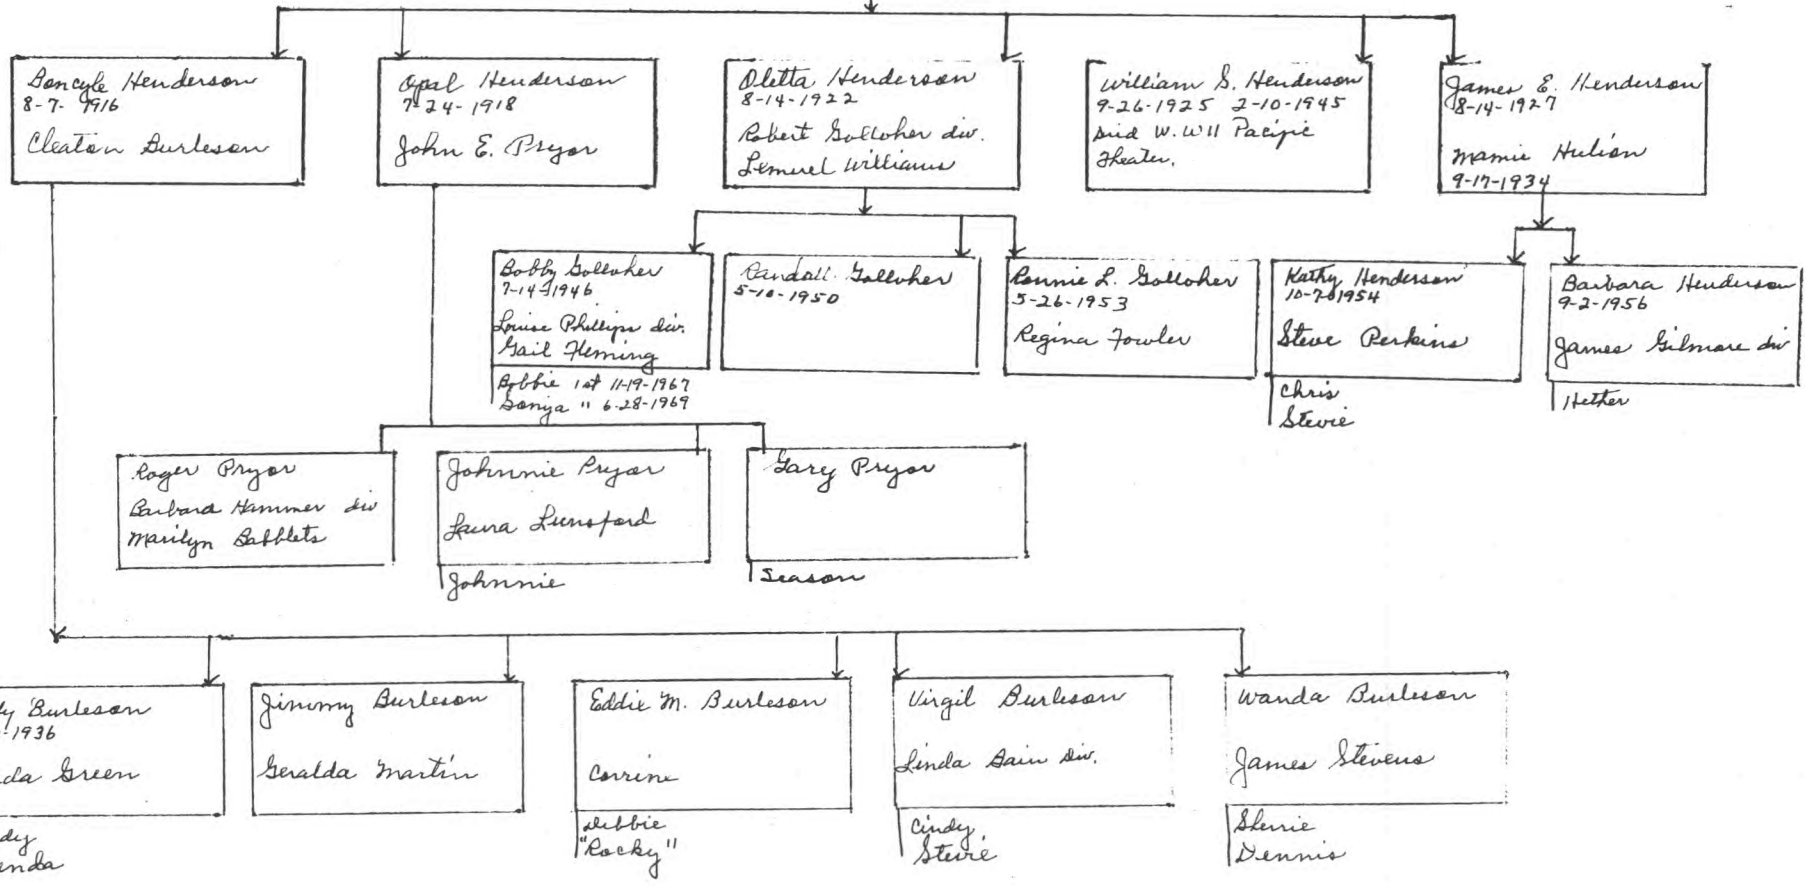 Boncyle Henderson
8-7-1916
Cleaton Burleson
Opal Henderson
7-24-1918
John E. Pryor
Oletta Henderson
8-14-1922
Robert Golloher div.
Lemuel Williams
William S. Henderson
9-26-1925 2-10-1945
Died W.WII Pacific
Theater.
James E. Henderson
8-14-1927
Mamie Hulion
9-17-1934
Bobby Golloher
7-14-1946
Louise Phillips div.
Gail Fleming
Bobbie 1st 11-19-1967
Sonja " 6-28-1969
Randall Golloher
5-10-1950
Ronnie L. Golloher
5-26-1953
Regina Fowler
Kathy Henderson
10-7-1954
Steve Perkins
Chris
Stevie
Barbara Henderson
9-2-1956
James Gilmore div
Hether
Roger Pryor
Barbara Hammer div
Marilyn Babblets
Johnnie Pryor
Laura Lunsford
Johnnie
Gary Pryor
Season
y Burleson
-1936
da Green
dy
enda
Jimmy Burleson
Geralda Martin
Eddie M. Burleson
Corrine
Debbie
"Rocky"
Virgil Burleson
Linda Bain Div.
Cindy,
Stevie
Wanda Burleson
James Stevens
Sherrie
Dennis